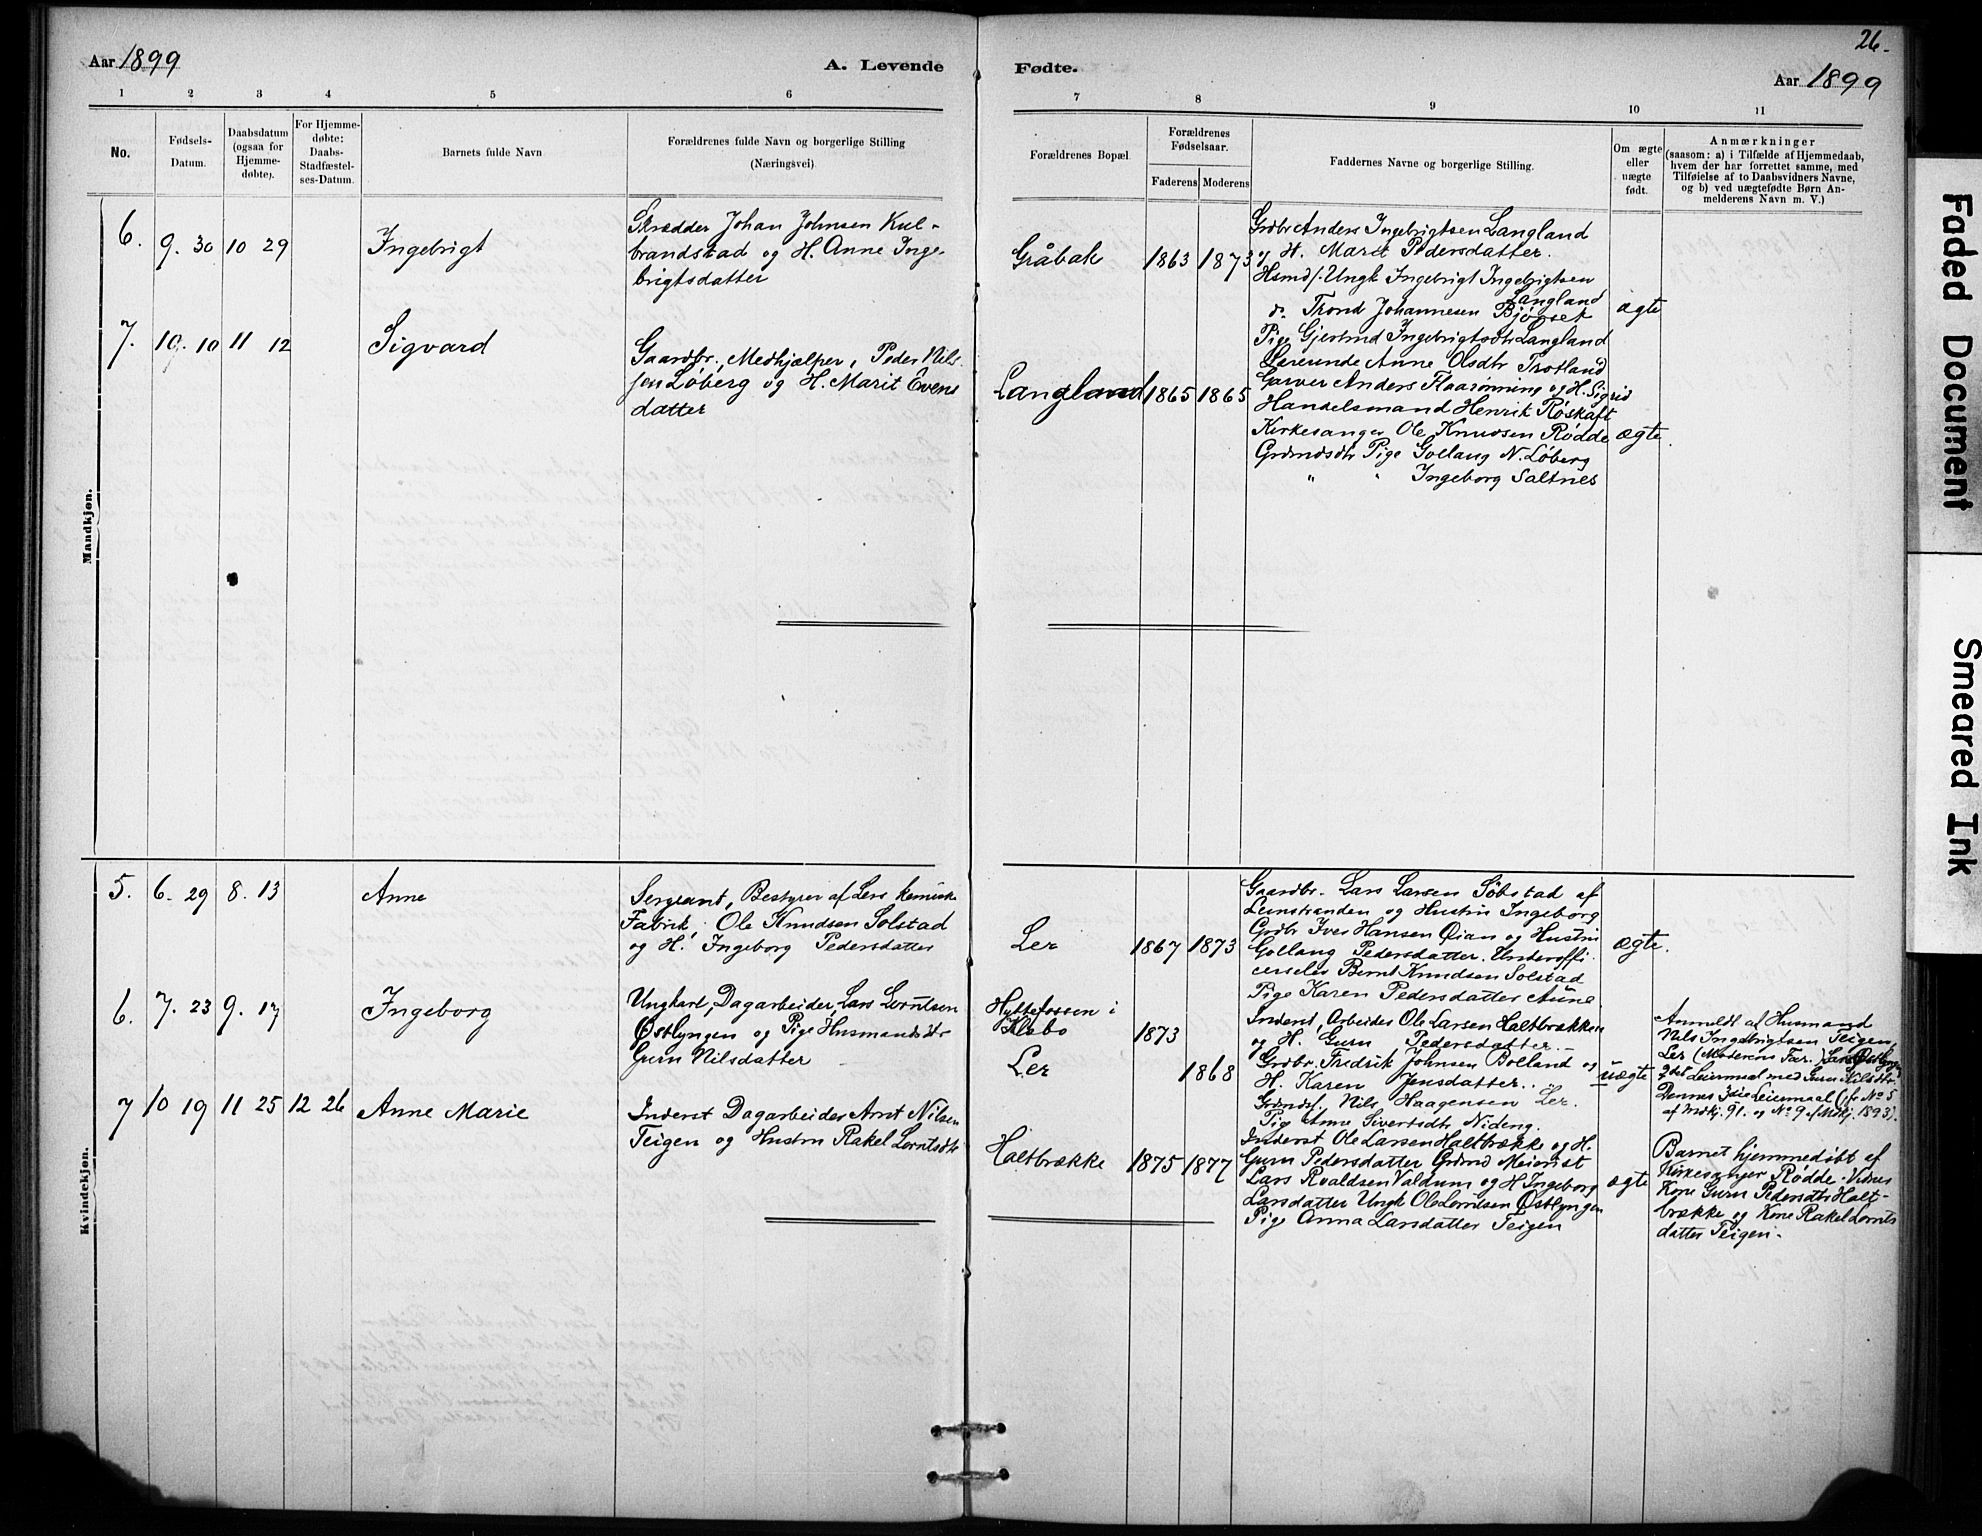 26.
Aar 1899
A. Levende
Fødte.
Aar 1899
1 2 3 4 5 6
7 8 9 10 11
No.
Fødsels-
Datum.
Daabsdatum
(ogsaa for
Hjemme-
døbte).
For Hjemme-
døbte:
Daabs-
Stadfæstel-
ses-Datum.
Barnets fulde Navn
Forældrenes fulde Navn og borgerlige Stilling
(Næringsvei)
Forældrenes Bopæl.
Forældrenes
Fødselsaar.
Faderens Moderens
Faddernes Navne og borgerlige Stilling.
Om ægte
eller
uægte
født.
Anmærkninger
(saasom: a) i Tilfælde af Hjemmedaab,
hvem der har forrettet samme, med
Tilføielse af to Daabsvidners Navne,
og b) ved uægtefødte Børn An-
melderens Navn m. V.)
Mandkjøn.
6. 9. 30 10 29
Ingebrigt
Skrædder Johan Johnsen Kul-
brandstad og H. Anne Inge-
brigtsdatter
Gråbak 1863 1873
Grdbr Anders Ingebrigtsen Langland
og H. Marit Pedersdatter.
Hsmd s. Ungk Ingebrigt Ingebrigtsen
Langland
do Trond Johannesen Bjørset
Pige Gjertrud Ingebrigtsdtr Langland
ægte
7. 10. 10 11 12
Sigvard
Gaardbr., Medhjælper, Peder Nils
sen Løberg og H. Marit Evens
datter
Langland 1865 1865
Lærerinde Anne Olsdtr Trotland
Garver Anders Flaarønning og H. Sigrid
Handelsmand Henrik Røskaft
Kirkesanger Ole Knudsen Rødde
Grdmdsdtr Pige Gollaug N. Løberg
" " Ingeborg Saltnes
ægte.
Kvindekjøn.
5. 6. 29 8. 13
Anne
Sergeant, Bestyrer af Lers kemiske
Fabrik, Ole Knudsen Solstad
og H. Ingeborg Pedersdatter
Ler 1867 1873
Gaardbr. Lars Larsen Søbstad af
Leinstranden og Hustru Ingeborg
Grdbr Iver Hansen Øian og Hustru
Gollaug Pedersdatter. Underoffi-
cerselev Bernt Knudsen Solstad
Pige Karen Pedersdatter Aune.
ægte.
6. 7. 23 9. 17
Ingeborg
Ungkarl, Dagarbeider, Lars Lorntsen
Østlyngen og Pige Husmandsdtr
Guru Nilsdatter
Hyttefossen i
Klæbo 1873
Ler 1868
Inderst, Arbeider Ole Larsen Haltbrækken
og H. Guru Pedersdatter.
Grdbr. Fredrik Johnsen Bolland og
H. Karen Jensdatter.
Grdmds. Nils Haagensen Ler.
Pige Anne Sivertsdtr Nideng.
uægte
Anmeldt af Husmand
Nils Ingebrigtsen Teigen,
Ler (Moderens Far.) Lars Østlyngens
2det Leiermaal med Guru Nilsdtr.
Dennes 3die Leiermaal (jfr No 5
af Mdkj. 91. og No 9 af Mdkj. 1893).
7 10 19 11 25 12 26
Anne Marie
Inderst Dagarbeider Arnt Nilsen
Teigen og Hustru Rakel Lorntsdtr
Haltbrække 1875 1877
Inderst Ole Larsen Haltbrække og H.
Guru Pedersdatter Grdmd Meierist
Lars Roaldsen Valdum og H Ingeborg
Larsdatter Ungk Ole Lorntsen Østlyngen
Pige Anna Larsdatter Teigen
ægte
Barnet hjemmedøbt af
Kirkesanger Rødde. Vidner
Kone Guru Pedersdtr Halt-
brække og Kone Rakel Lornts
datter Teigen.
Faded Document
Smeared Ink